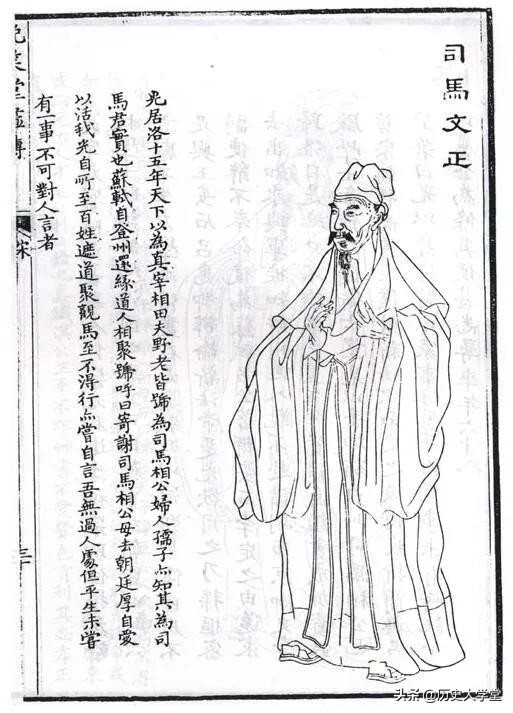 司馬文正
光居洛十五年天下以為真宰相田夫野老皆號為司馬相公婦人孺子亦知其為司
馬君實也蘇軾自登州還緣道人相聚號呼曰寄謝司馬相公毋去朝廷厚自愛
以活我光自所至百姓遮道聚觀馬至不得行亦嘗自言吾無過人處但平生未嘗
有一事不可對人言者
头条 @历史大学堂